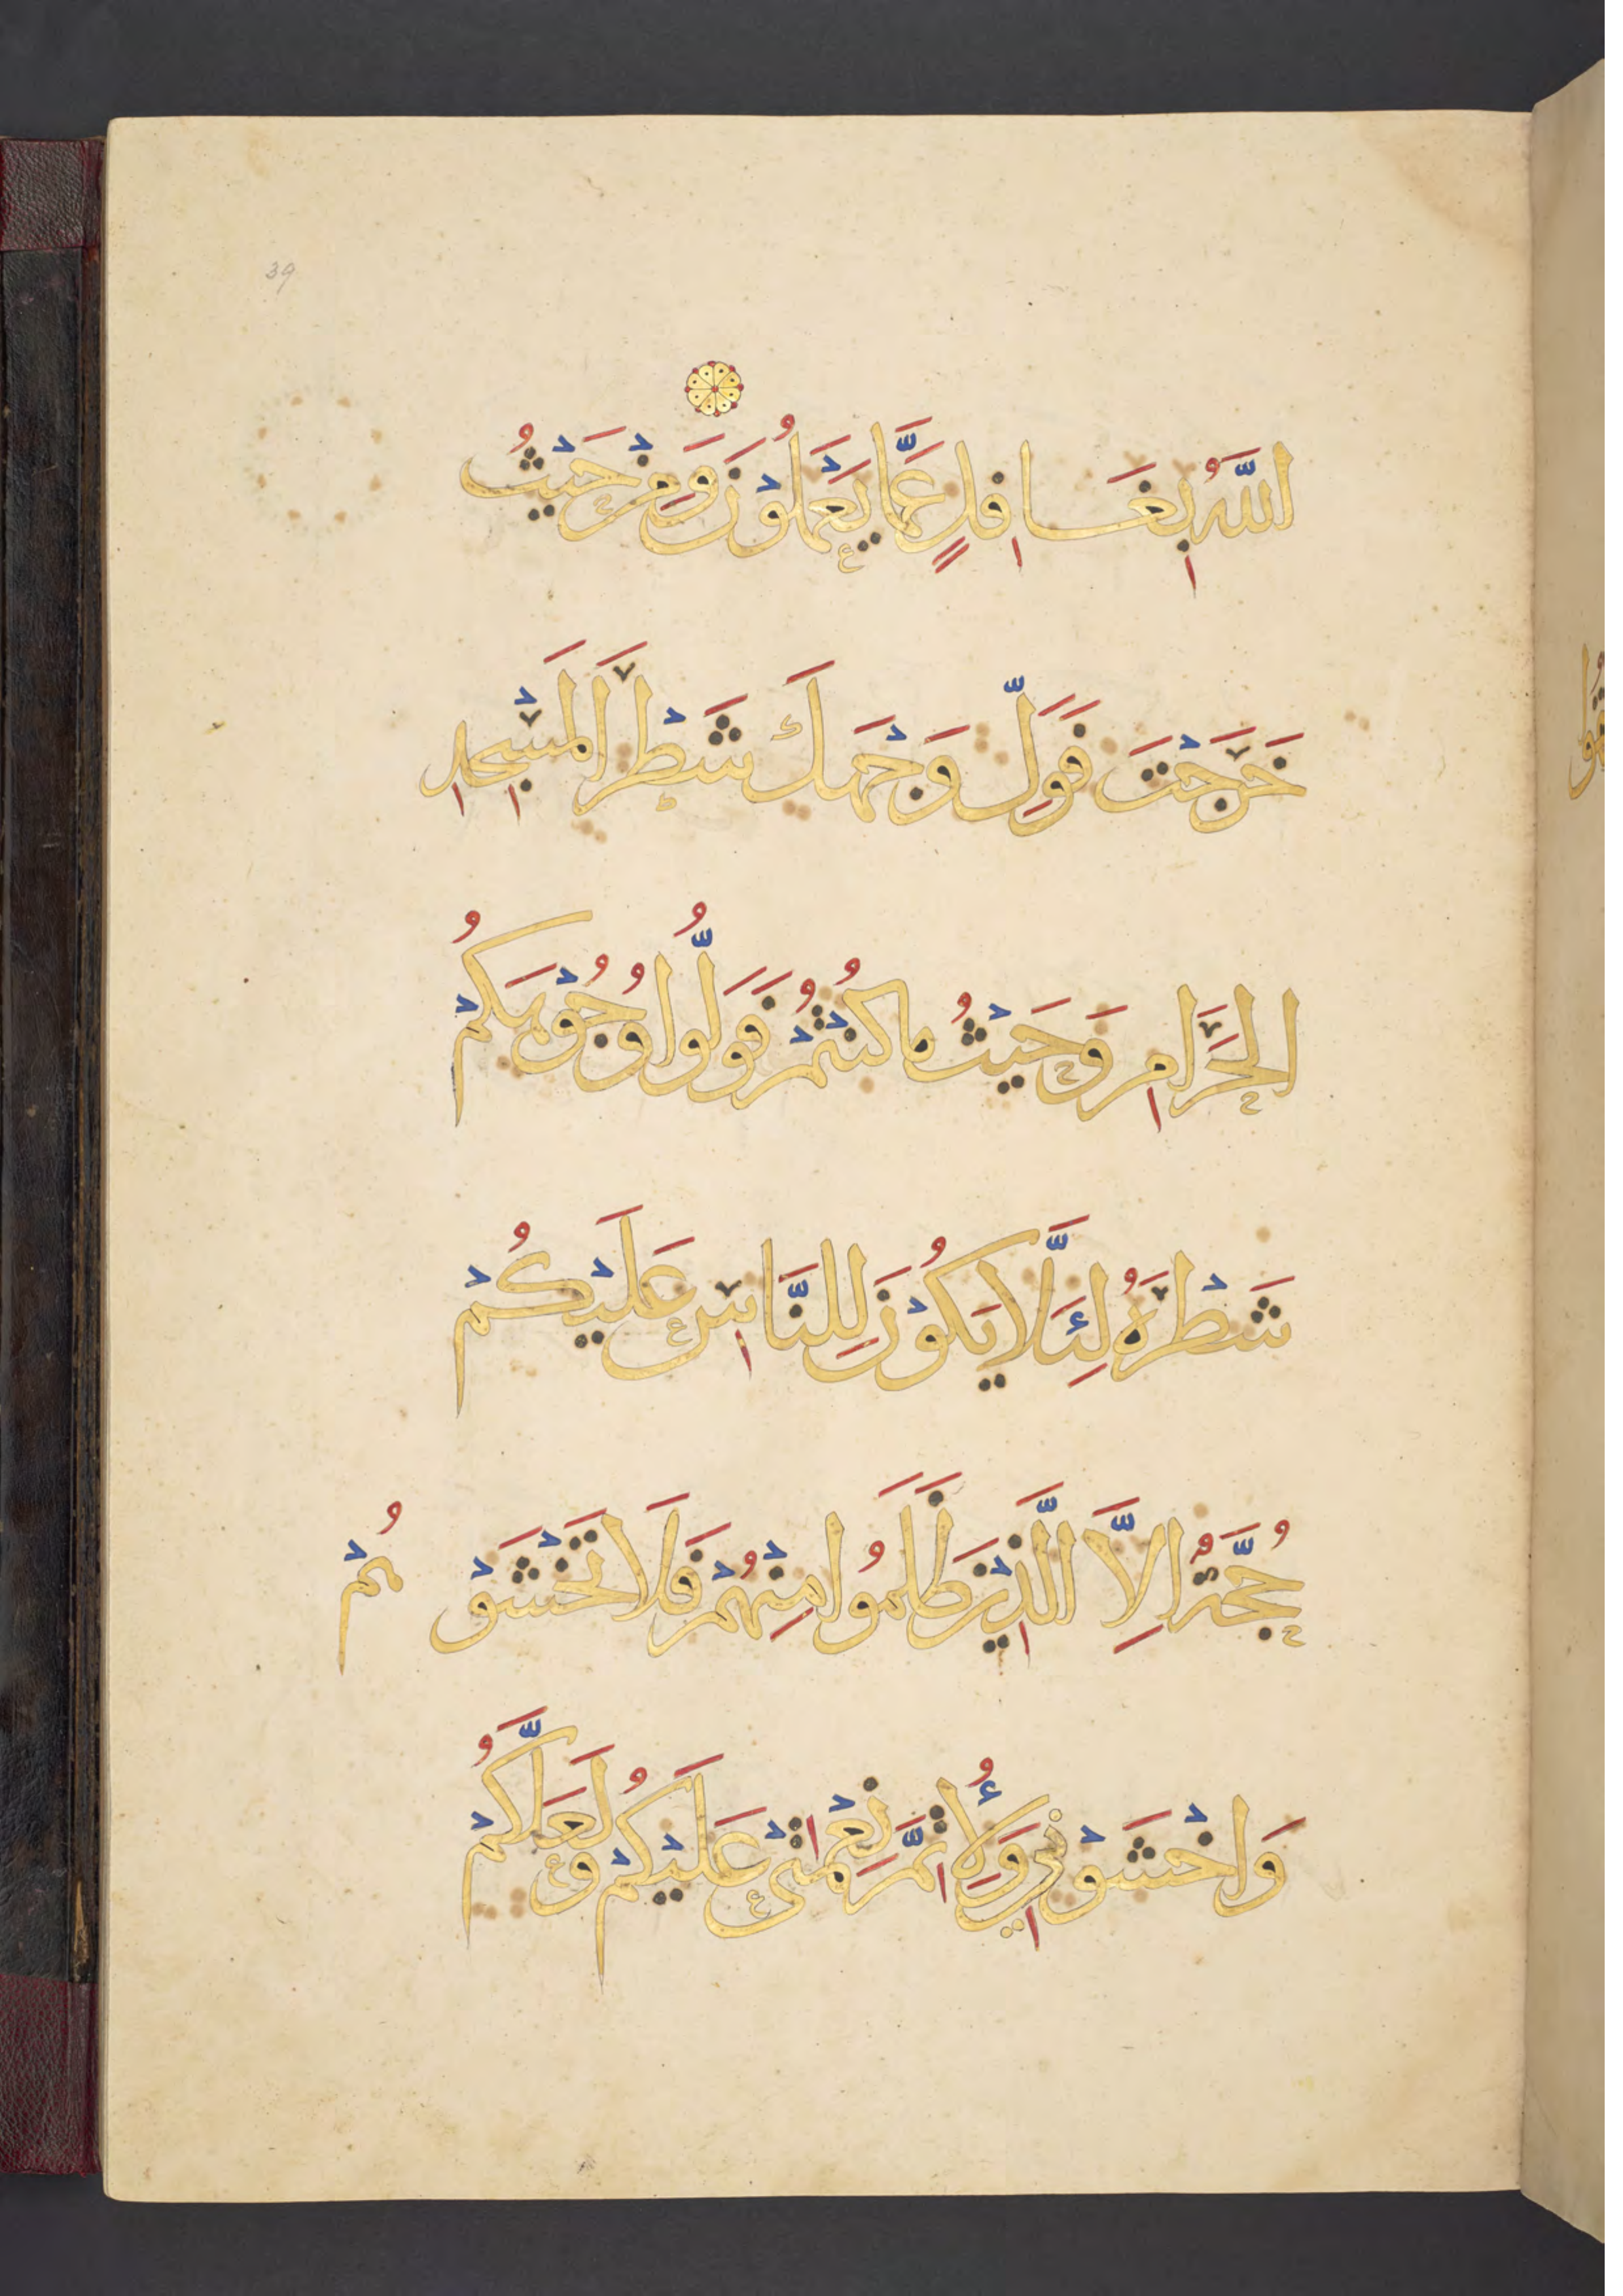 39
اللَّهُ بِغَافِلٍ عَمَّا يَعْمَلُوْنَ وَمِنْ حَيْثُ
خَرَجْتَ فَوَلِّ وَجْهَكَ شَطْرَ الْمَسْجِدِ
الْحَرَامِ وَحَيْثُ مَا كُنْتُمْ فَوَلُّوا وُجُوْهَكُمْ
شَطْرَهُ لِئَلَّا يَكُوْنَ لِلنَّاسِ عَلَيْكُمْ
حُجَّةٌ اِلَّا الَّذِيْنَ ظَلَمُوا مِنْهُمْ فَلَا تَخْشَوْ هُمْ
وَاخْشَوْنِي وَلِأُتِمَّ نِعْمَتِيْ عَلَيْكُمْ وَلَعَلَّكُمْ